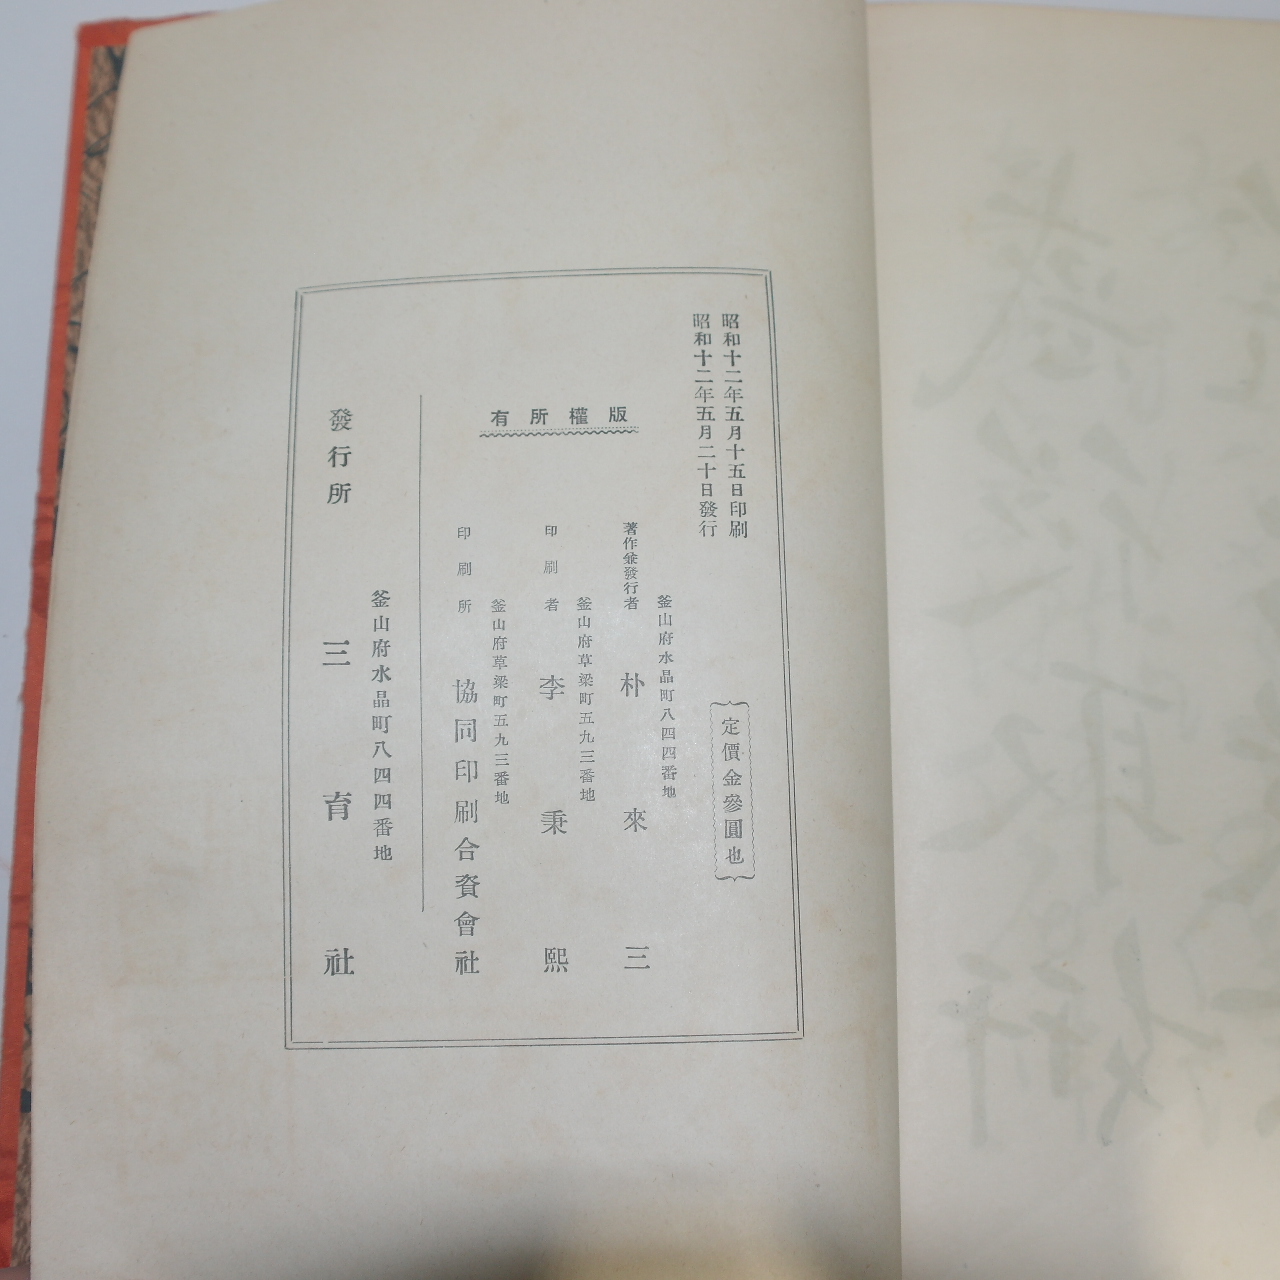 昭和十二年五月十五日印刷
昭和十二年五月二十日發行
定價金參圓也
版權所有
釜山府水晶町八四四番地
著作兼發行者 朴來三
釜山府草梁町五九三番地
印刷者 李秉熙
釜山府草梁町五九三番地
印刷所 協同印刷合資會社
釜山府水晶町八四四番地
發行所 三育社